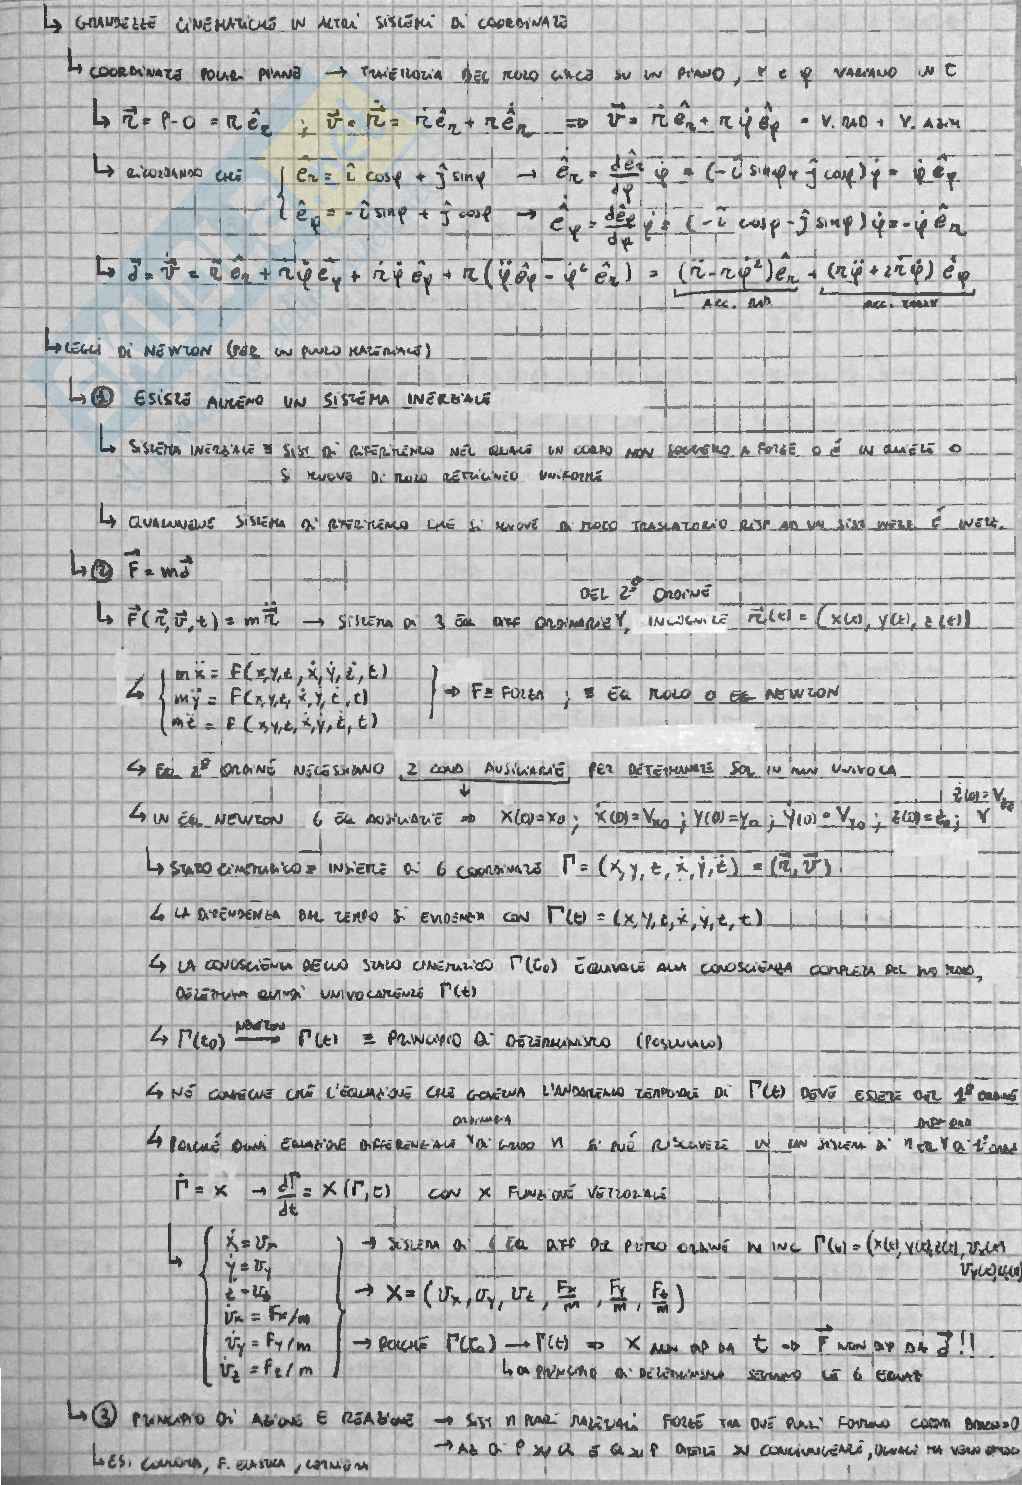 ↳ GRANDEZZE CINEMATICHE IN ALTRI SISTEMI DI COORDINATE
↳ COORDINATE POLARI PIANE → TRAIETTORIA DEL MOTO GIACE SU UN PIANO, r E φ VARIANO IN t
↳ r⃗ = P-O = r ê_r ; v⃗ = ṙ⃗ = ṙ ê_r + r ê̇_r ⇒ v⃗ = ṙ ê_r + r φ̇ ê_φ = V. RAD + V. AZIM
↳ RICORDANDO CHE { ê_r = î cosφ + ĵ sinφ → ê̇_r = dê_r/dφ φ̇ = (-î sinφ + ĵ cosφ) φ̇ = φ̇ ê_φ
ê_φ = -î sinφ + ĵ cosφ → ê̇_φ = dê_φ/dφ φ̇ = (-î cosφ - ĵ sinφ) φ̇ = -φ̇ ê_r
↳ a⃗ = v̇⃗ = r̈ ê_r + ṙ φ̇ ê_φ + ṙ φ̇ ê_φ + r (φ̈ ê_φ - φ̇² ê_r) = (r̈ - rφ̇²) ê_r + (rφ̈ + 2ṙφ̇) ê_φ
ACC. RAD
↳ LEGGI DI NEWTON (PER UN PUNTO MATERIALE)
↳ ① ESISTE ALMENO UN SISTEMA INERZIALE
↳ SISTEMA INERZIALE ≡ SIST DI RIFERIMENTO NEL QUALE UN CORPO NON SOGGETTO A FORZE O È IN QUIETE O
SI MUOVE DI MOTO RETTILINEO UNIFORME
↳ QUALUNQUE SISTEMA DI RIFERIMENTO CHE SI MUOVE DI MOTO TRASLATORIO RISP AD UN SIST INERZ È INERZ.
↳ ② F⃗ = ma⃗
DEL 2º ORDINE
↳ F⃗(r⃗, v⃗, t) = m r̈⃗ → SISTEMA DI 3 EQ DIFF ORDINARIE, INCOGNITE r⃗(t) = (x(t), y(t), z(t))
↳ { mẍ = F(x,y,z,ẋ,ẏ,ż,t)
mÿ = F(x,y,z,ẋ,ẏ,ż,t) } ⇒ F ≡ FORZA ; ≡ EQ MOTO O EQ NEWTON
mz̈ = F(x,y,z,ẋ,ẏ,ż,t)
↳ EQ. 2º ORDINE NECESSITANO 2 COND AUSILIARIE PER DETERMINARE SOL IN MAN UNIVOCA
↳ IN EQ NEWTON 6 EQ AUSILIARIE ⇒ x(0)=x₀ ; ẋ(0)=V_x0 ; y(0)=y₀ ; ẏ(0)=V_y0 ; z(0)=z₀ ; ż(0)=V_z0
↳ STATO CINEMATICO ≡ INSIEME DI 6 COORDINATE Γ = (x, y, z, ẋ, ẏ, ż) = (r⃗, v⃗)
↳ LA DIPENDENZA DAL TEMPO SI EVIDENZIA CON Γ(t) = (x, y, z, ẋ, ẏ, ż, t)
↳ LA CONOSCIENZA DELLO STATO CINEMATICO Γ(t₀) EQUIVALE ALLA CONOSCIENZA COMPLETA DEL SUO MOTO,
DETERMINA QUINDI UNIVOCAMENTE Γ(t)
↳ Γ(t₀) —NEWTON→ Γ(t) ≡ PRINCIPIO DI DETERMINISMO (POSTULATO)
↳ NE CONSEGUE CHE L'EQUAZIONE CHE GOVERNA L'ANDAMENTO TEMPORALE DI Γ(t) DEVE ESSERE DEL 1º ORDINE
↳ PERCHÉ OGNI EQUAZIONE DIFFERENZIALE ORDINARIA DI GRADO n SI PUÒ RISCRIVERE IN UN SISTEMA DI n EQ DIFF ORD DI 1º ORDINE
Γ̇ = X → dΓ/dt = X(Γ, t) CON X FUNZIONE VETTORIALE
↳ { ẋ = v_x → SISTEMA DI 6 EQ DIFF DEL PRIMO ORDINE IN INC Γ(t) = (x(t), y(t), z(t), v_x(t)
ẏ = v_y v_y(t), v_z(t))
ż = v_z → X = (v_x, v_y, v_z, F_x/m, F_y/m, F_z/m)
v̇_x = F_x/m
v̇_y = F_y/m → POICHÉ Γ(t₀) → Γ(t) ⇒ X NON DIP DA t ⇒ F⃗ NON DIP DA a⃗!!
v̇_z = F_z/m ↳ DA PRINCIPIO DI DETERMINISMO SEGUONO LE 6 EQUAZ
↳ ③ PRINCIPIO DI AZIONE E REAZIONE → SIST n PUNTI MATERIALI FORZE TRA DUE PUNTI FORMANO COPPIA
→ AZ DI P SU Q E Q SU P DIRETTE SU CONGIUNGENTE, UGUALI MA VERSO OPPOSTO
↳ ES. F. ELASTICA